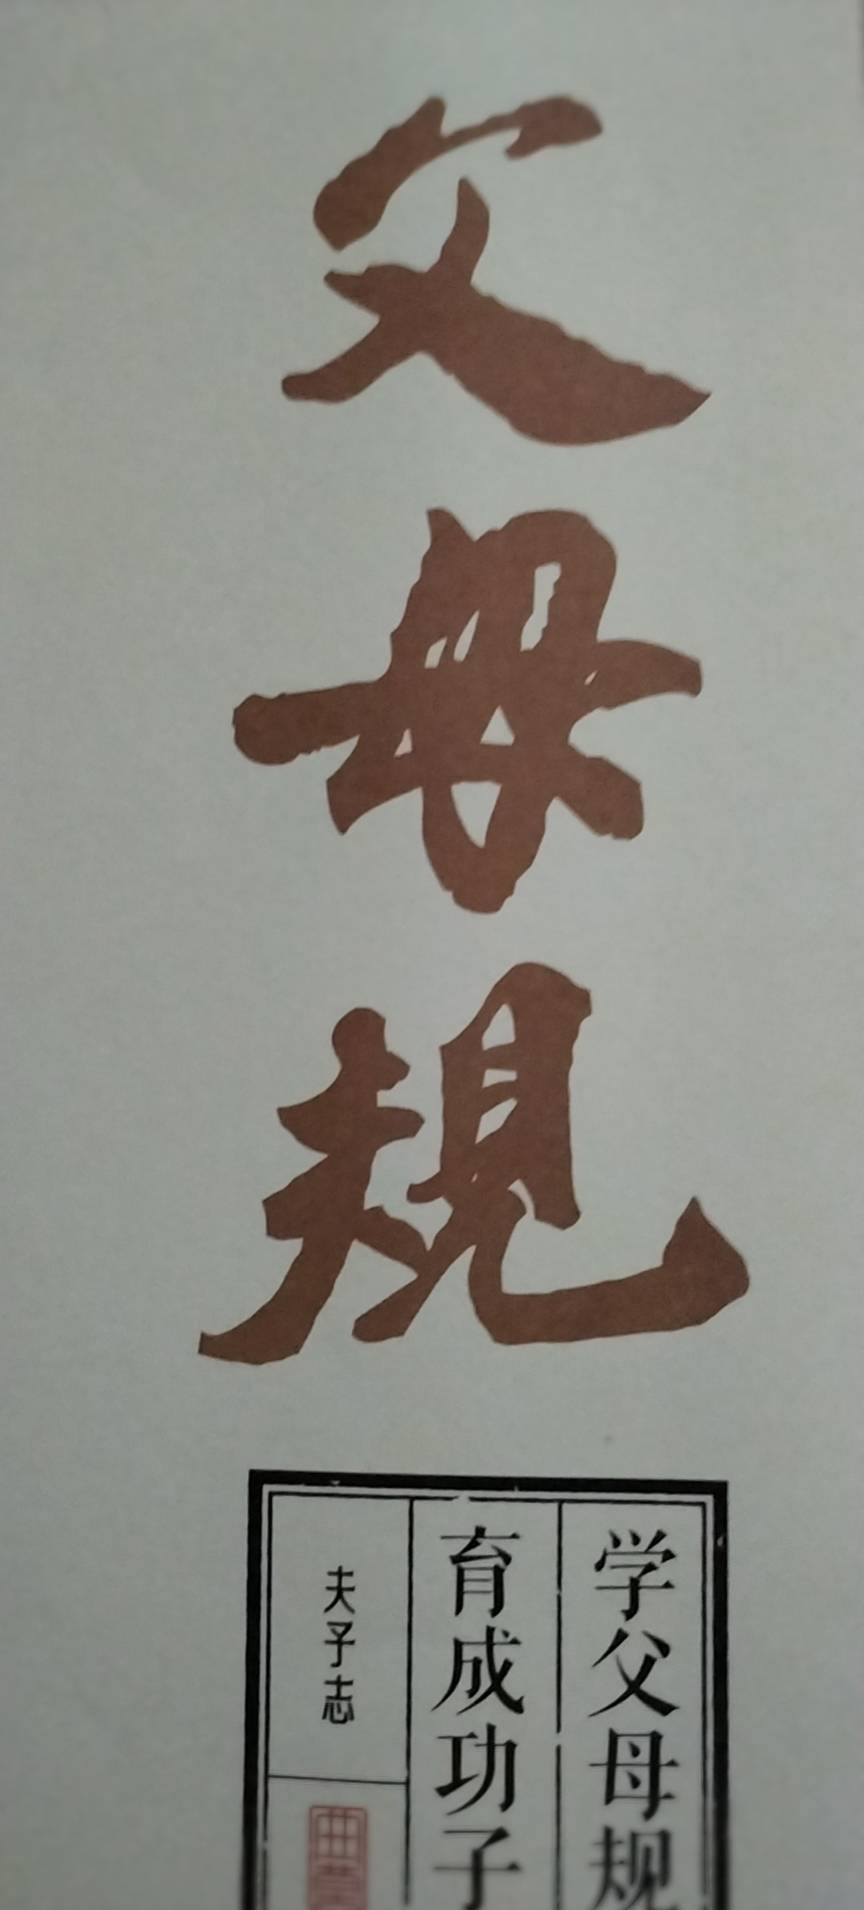 父母規
学父母规
育成功子
夫子志